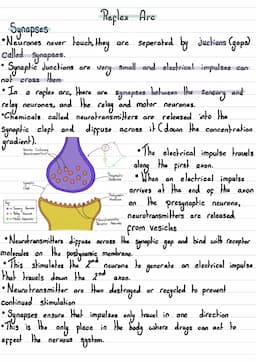 Reflex Arc
Synapses
• Neurones never touch, they are seperated by juctions (gaps)
called synapses.
• Synaptic Junctions are very small and electrical impulses can
not cross them
• In a reflex arc, there are synapses between the sensory and
relay neurones, and the relay and motor neurones.
• Chemicals called neurotransmitters are released into the
synaptic cleft and diffuse across it (down the concentration
gradient).
• The electrical impulse travels
along the first axon.
• When an electrical impulse
arrives at the end of the axon
on the presynaptic neurone,
neurotransmitters are released
from vesicles
• Neurotransmitters diffuse across the synaptic gap and bind with receptor
molecules on the postsynaptic membrane.
• This stimulates the 2nd neurone to generate an electrical impulse
that travels down the 2nd axon.
• Neurotransmitter are then destroyed or recycled to prevent
continued stimulation
• Synapses ensure that impulses only travel in one direction
• This is the only place in the body where drugs can act to
affect the nervous system.